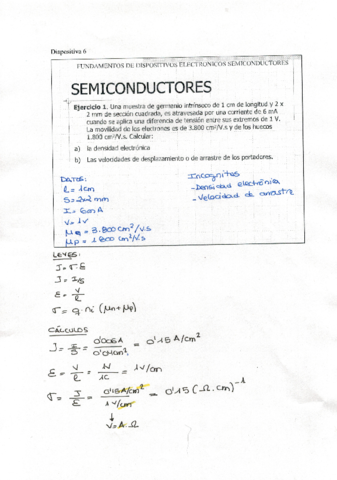 Diapositiva 6
FUNDAMENTOS DE DISPOSITIVOS ELECTRONICOS SEMICONDUCTORES
SEMICONDUCTORES
Ejercicio 1. Una muestra de germanio intrínseco de 1 cm de longitud y 2 x
2 mm de sección cuadrada, es atravesada por una corriente de 6 mA
cuando se aplica una diferencia de tensión entre sus extremos de 1 V.
La movilidad de los electrones es de 3.800 cm²/V.s y de los huecos
1.800 cm²/V.s. Calcular:
a) la densidad electrónica
b) Las velocidades de desplazamiento o de arrastre de los portadores.
DATOS:
l = 1cm
S = 2x2 mm
I = 6mA
V = 1V
μn = 3.800 cm²/V.s
μp = 1800 cm²/V.s
Incognitas
- Densidad electrónica
- Velocidad de arrastre
LEYES:
J = σ·E
J = I/S
E = V/l
σ = q·ni (μn + μp)
CÁLCULOS
J = I/S = 0'006A / 0'04cm² = 0'15 A/cm²
E = V/l = 1V/1C = 1V/cm
σ = J/E = 0'15A/cm² / 1V/cm = 0'15 (Ω·cm)⁻¹
↓
V = A·Ω